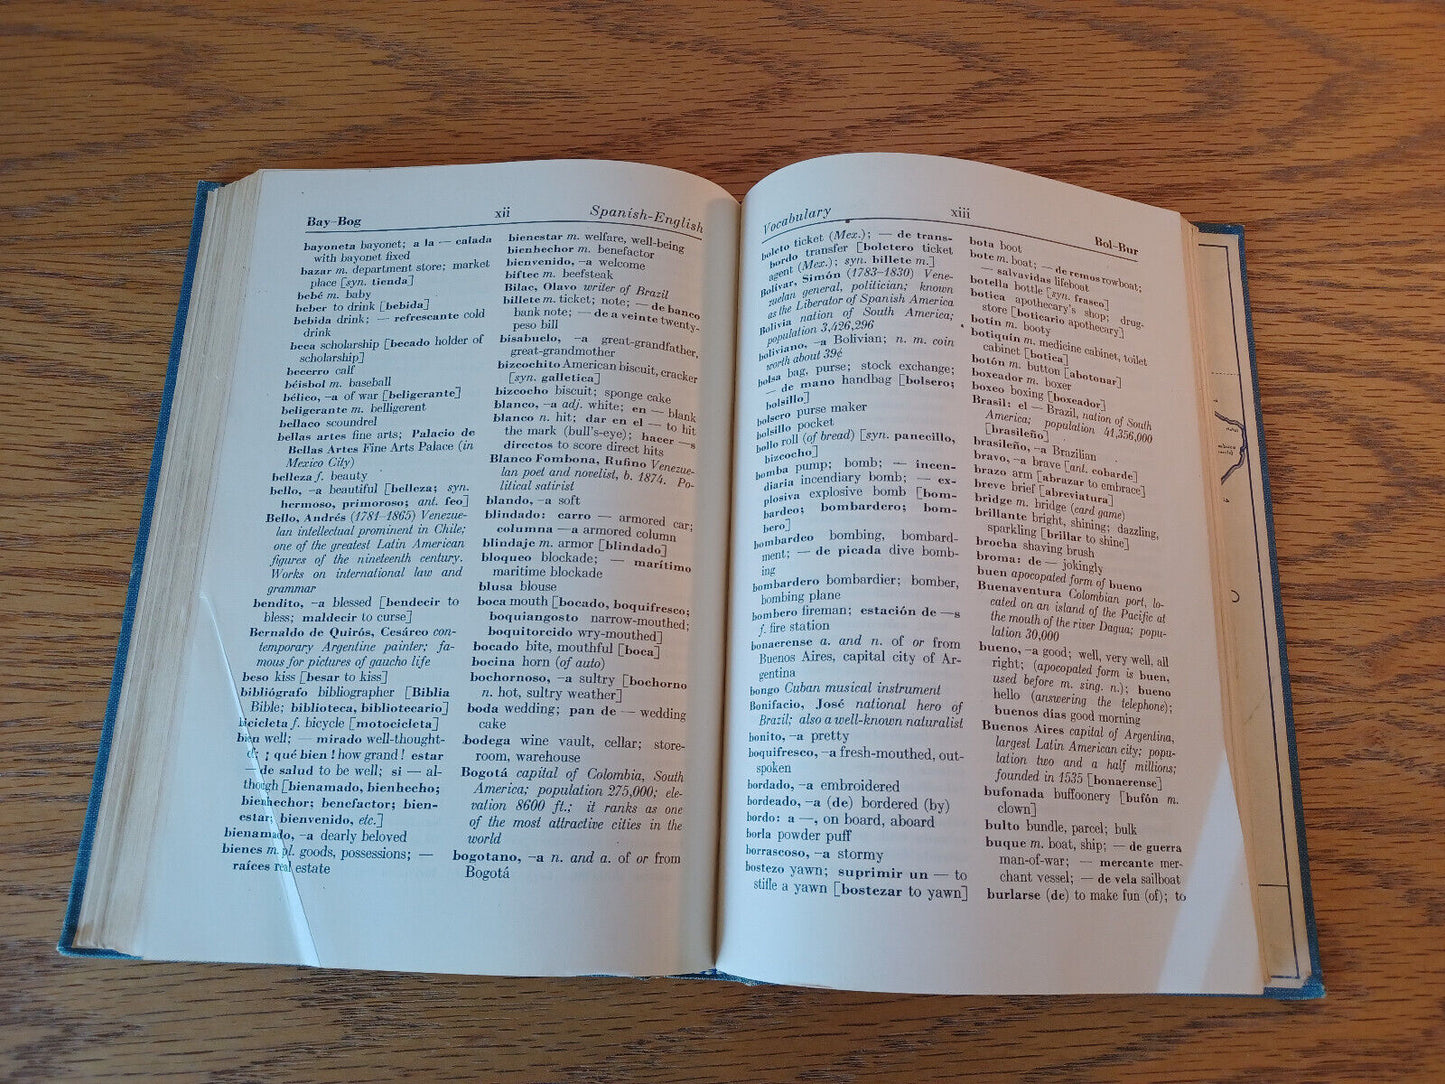 Bay–Bog
xii
Spanish-English
bayoneta bayonet; a la — calada
with bayonet fixed
bazar m. department store; market
place [syn. tienda]
bebé m. baby
beber to drink [bebida]
bebida drink; — refrescante cold
drink
beca scholarship [becado holder of
scholarship]
becerro calf
béisbol m. baseball
bélico, –a of war [beligerante]
beligerante m. belligerent
bellaco scoundrel
bellas artes fine arts; Palacio de
Bellas Artes Fine Arts Palace (in
Mexico City)
belleza f. beauty
bello, –a beautiful [belleza; syn.
hermoso, primoroso; ant. feo]
Bello, Andrés (1781–1865) Venezue-
lan intellectual prominent in Chile;
one of the greatest Latin American
figures of the nineteenth century.
Works on international law and
grammar
bendito, –a blessed [bendecir to
bless; maldecir to curse]
Bernaldo de Quirós, Cesáreo con-
temporary Argentine painter; fa-
mous for pictures of gaucho life
beso kiss [besar to kiss]
bibliógrafo bibliographer [Biblia
Bible; biblioteca, bibliotecario]
bicicleta f. bicycle [motocicleta]
bien well; — mirado well-thought-
; ¡ qué bien ! how grand! estar
— de salud to be well; si — al-
though [bienamado, bienhecho;
bienhechor; benefactor; bien-
estar, bienvenido, etc.]
bienamado, –a dearly beloved
bienes m. pl. goods, possessions; —
raíces real estate
bienestar m. welfare, well-being
bienhechor m. benefactor
bienvenido, –a welcome
biftec m. beefsteak
Bilac, Olavo writer of Brazil
billete m. ticket; note; — de banco
bank note; — de a veinte twenty-
peso bill
bisabuelo, –a great-grandfather,
great-grandmother
bizcochito American biscuit, cracker
[syn. galletica]
bizcocho biscuit; sponge cake
blanco, –a adj. white; en — blank
blanco n. hit; dar en el — to hit
the mark (bull's-eye); hacer —s
directos to score direct hits
Blanco Fombona, Rufino Venezue-
lan poet and novelist, b. 1874. Po-
litical satirist
blando, –a soft
blindado: carro — armored car;
columna —a armored column
blindaje m. armor [blindado]
bloqueo blockade; — marítimo
maritime blockade
blusa blouse
boca mouth [bocado, boquifresco;
boquiangosto narrow-mouthed;
boquitorcido wry-mouthed]
bocado bite, mouthful [boca]
bocina horn (of auto)
bochornoso, –a sultry [bochorno
n. hot, sultry weather]
boda wedding; pan de — wedding
cake
bodega wine vault, cellar; store-
room, warehouse
Bogotá capital of Colombia, South
America; population 275,000; ele-
vation 8600 ft.; it ranks as one
of the most attractive cities in the
world
bogotano, –a n. and a. of or from
Bogotá
Vocabulary
xiii
Bol–Bur
boleto ticket (Mex.); — de trans-
bordo transfer [boletero ticket
agent (Mex.); syn. billete m.]
Bolívar, Simón (1783–1830) Vene-
zuelan general, politician; known
as the Liberator of Spanish America
Bolivia nation of South America;
population 3,426,296
boliviano, –a Bolivian; n. m. coin
worth about 39¢
bolsa bag, purse; stock exchange;
— de mano handbag [bolsero;
bolsillo]
bolsero purse maker
bolsillo pocket
bollo roll (of bread) [syn. panecillo,
bizcocho]
bomba pump; bomb; — incen-
diaria incendiary bomb; — ex-
plosiva explosive bomb [bom-
bardeo; bombardero; bom-
bero]
bombardeo bombing, bombard-
ment; — de picada dive bomb-
ing
bombardero bombardier; bomber,
bombing plane
bombero fireman; estación de —s
f. fire station
bonaerense a. and n. of or from
Buenos Aires, capital city of Ar-
gentina
bongo Cuban musical instrument
Bonifacio, José national hero of
Brazil; also a well-known naturalist
bonito, –a pretty
boquifresco, –a fresh-mouthed, out-
spoken
bordado, –a embroidered
bordeado, –a (de) bordered (by)
bordo: a —, on board, aboard
borla powder puff
borrascoso, –a stormy
bostezo yawn; suprimir un — to
stifle a yawn [bostezar to yawn]
bota boot
bote m. boat; — de remos rowboat;
— salvavidas lifeboat
botella bottle [syn. frasco]
botica apothecary's shop; drug-
store [boticario apothecary]
botín m. booty
botiquín m. medicine cabinet, toilet
cabinet [botica]
botón m. button [abotonar]
boxeador m. boxer
boxeo boxing [boxeador]
Brasil: el — Brazil, nation of South
America; population 41,356,000
[brasileño]
brasileño, –a Brazilian
bravo, –a brave [ant. cobarde]
brazo arm [abrazar to embrace]
breve brief [abreviatura]
bridge m. bridge (card game)
brillante bright, shining; dazzling,
sparkling [brillar to shine]
brocha shaving brush
broma: de — jokingly
buen apocopated form of bueno
Buenaventura Colombian port, lo-
cated on an island of the Pacific at
the mouth of the river Dagua; popu-
lation 30,000
bueno, –a good; well, very well, all
right; (apocopated form is buen,
used before m. sing. n.); bueno
hello (answering the telephone);
buenos días good morning
Buenos Aires capital of Argentina,
largest Latin American city; popu-
lation two and a half millions;
founded in 1535 [bonaerense]
bufonada buffoonery [bufón m.
clown]
bulto bundle, parcel; bulk
buque m. boat, ship; — de guerra
man-of-war; — mercante mer-
chant vessel; — de vela sailboat
burlarse (de) to make fun (of); to